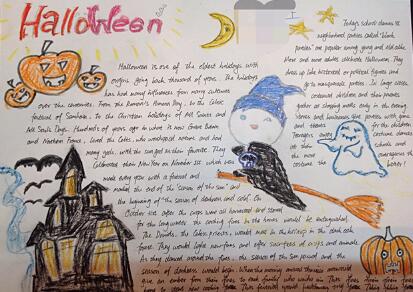 Halloween
Halloween is one of the oldest holidays with
origins going back thousands of years. The holidays
has had many influences from many cultures
over the centuries. From the Roman's Pomona Day, to the Celtic
festival of Samhain, to the Christian holidays of All Saints and
All Souls Days. Hundreds of years ago in what is now Great Britain
and Northern France, lived the Celts, who worshipped nature and had
many gods, with the sun god as their favorite. They
celebrated their New Year on November 1st, which was
make every year with a festival and
marked the end of the "season of the sun" and
the beginning of "the season of darkness and cold". On
October 31st after the crops were all harvested and stored
for the long winter the cooking fires in the homes would be extinguished.
The Druids, the Celtic priests, would meet in the hilltop in the dark oak
forest. They would light new fires and offer sacrifices of crops and animals.
As they danced around the fires, the season of the sun passed and the
season of darkness would begin. When the morning arrived the
give an ember from their fires to each family who would
Today school dances and
neighborhood parties called "block
parties" are popular among young and old alike.
More and more adults celebrate Halloween. They
dress up like historical or political figures and
go to masquerade parties. In larger cities,
costumed children and their parents
gather at shopping malls early in the evening.
Stores and businesses give parties with games
and treats for the children.
Teenagers enjoy costume dances
at their schools and
the more outrageous
the costume the better!